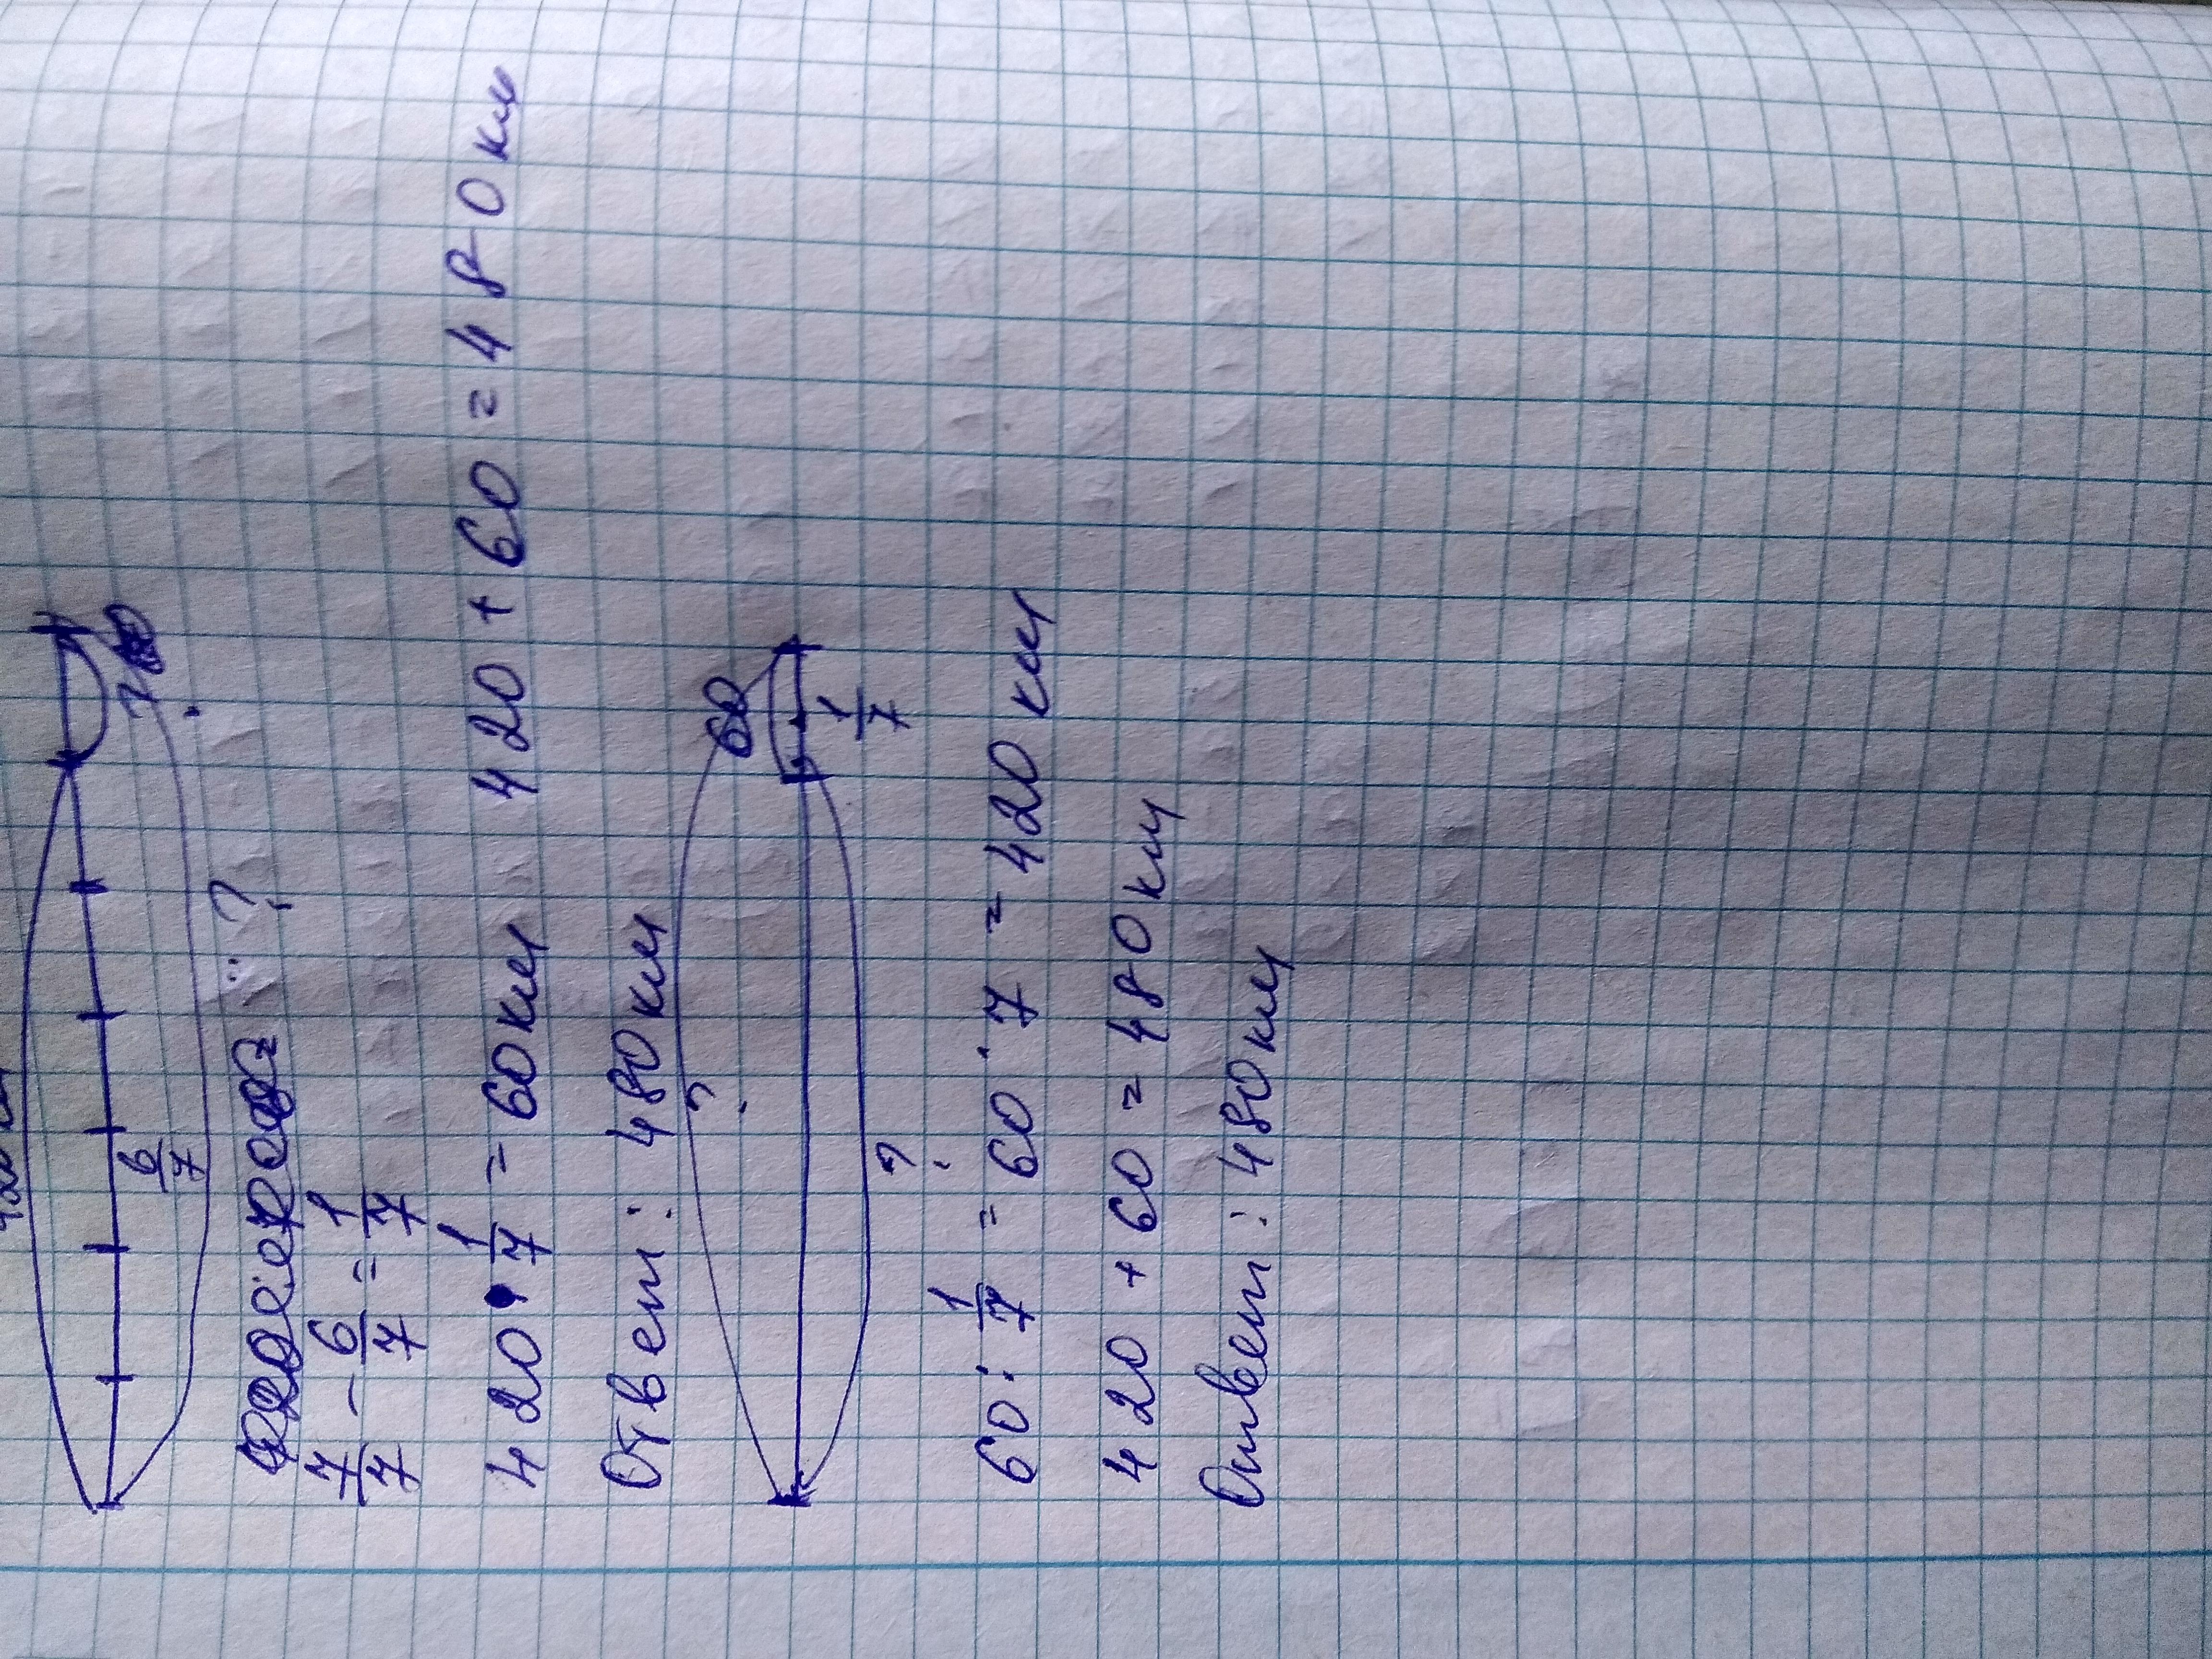 6/7
?
7/7 - 6/7 = 1/7
420 · 1/7 = 60 км 420 + 60 = 480 км
Ответ: 480 км
60
?
1/7
?
60 : 1/7 = 60 · 7 = 420 км
420 + 60 = 480 км
Ответ: 480 км